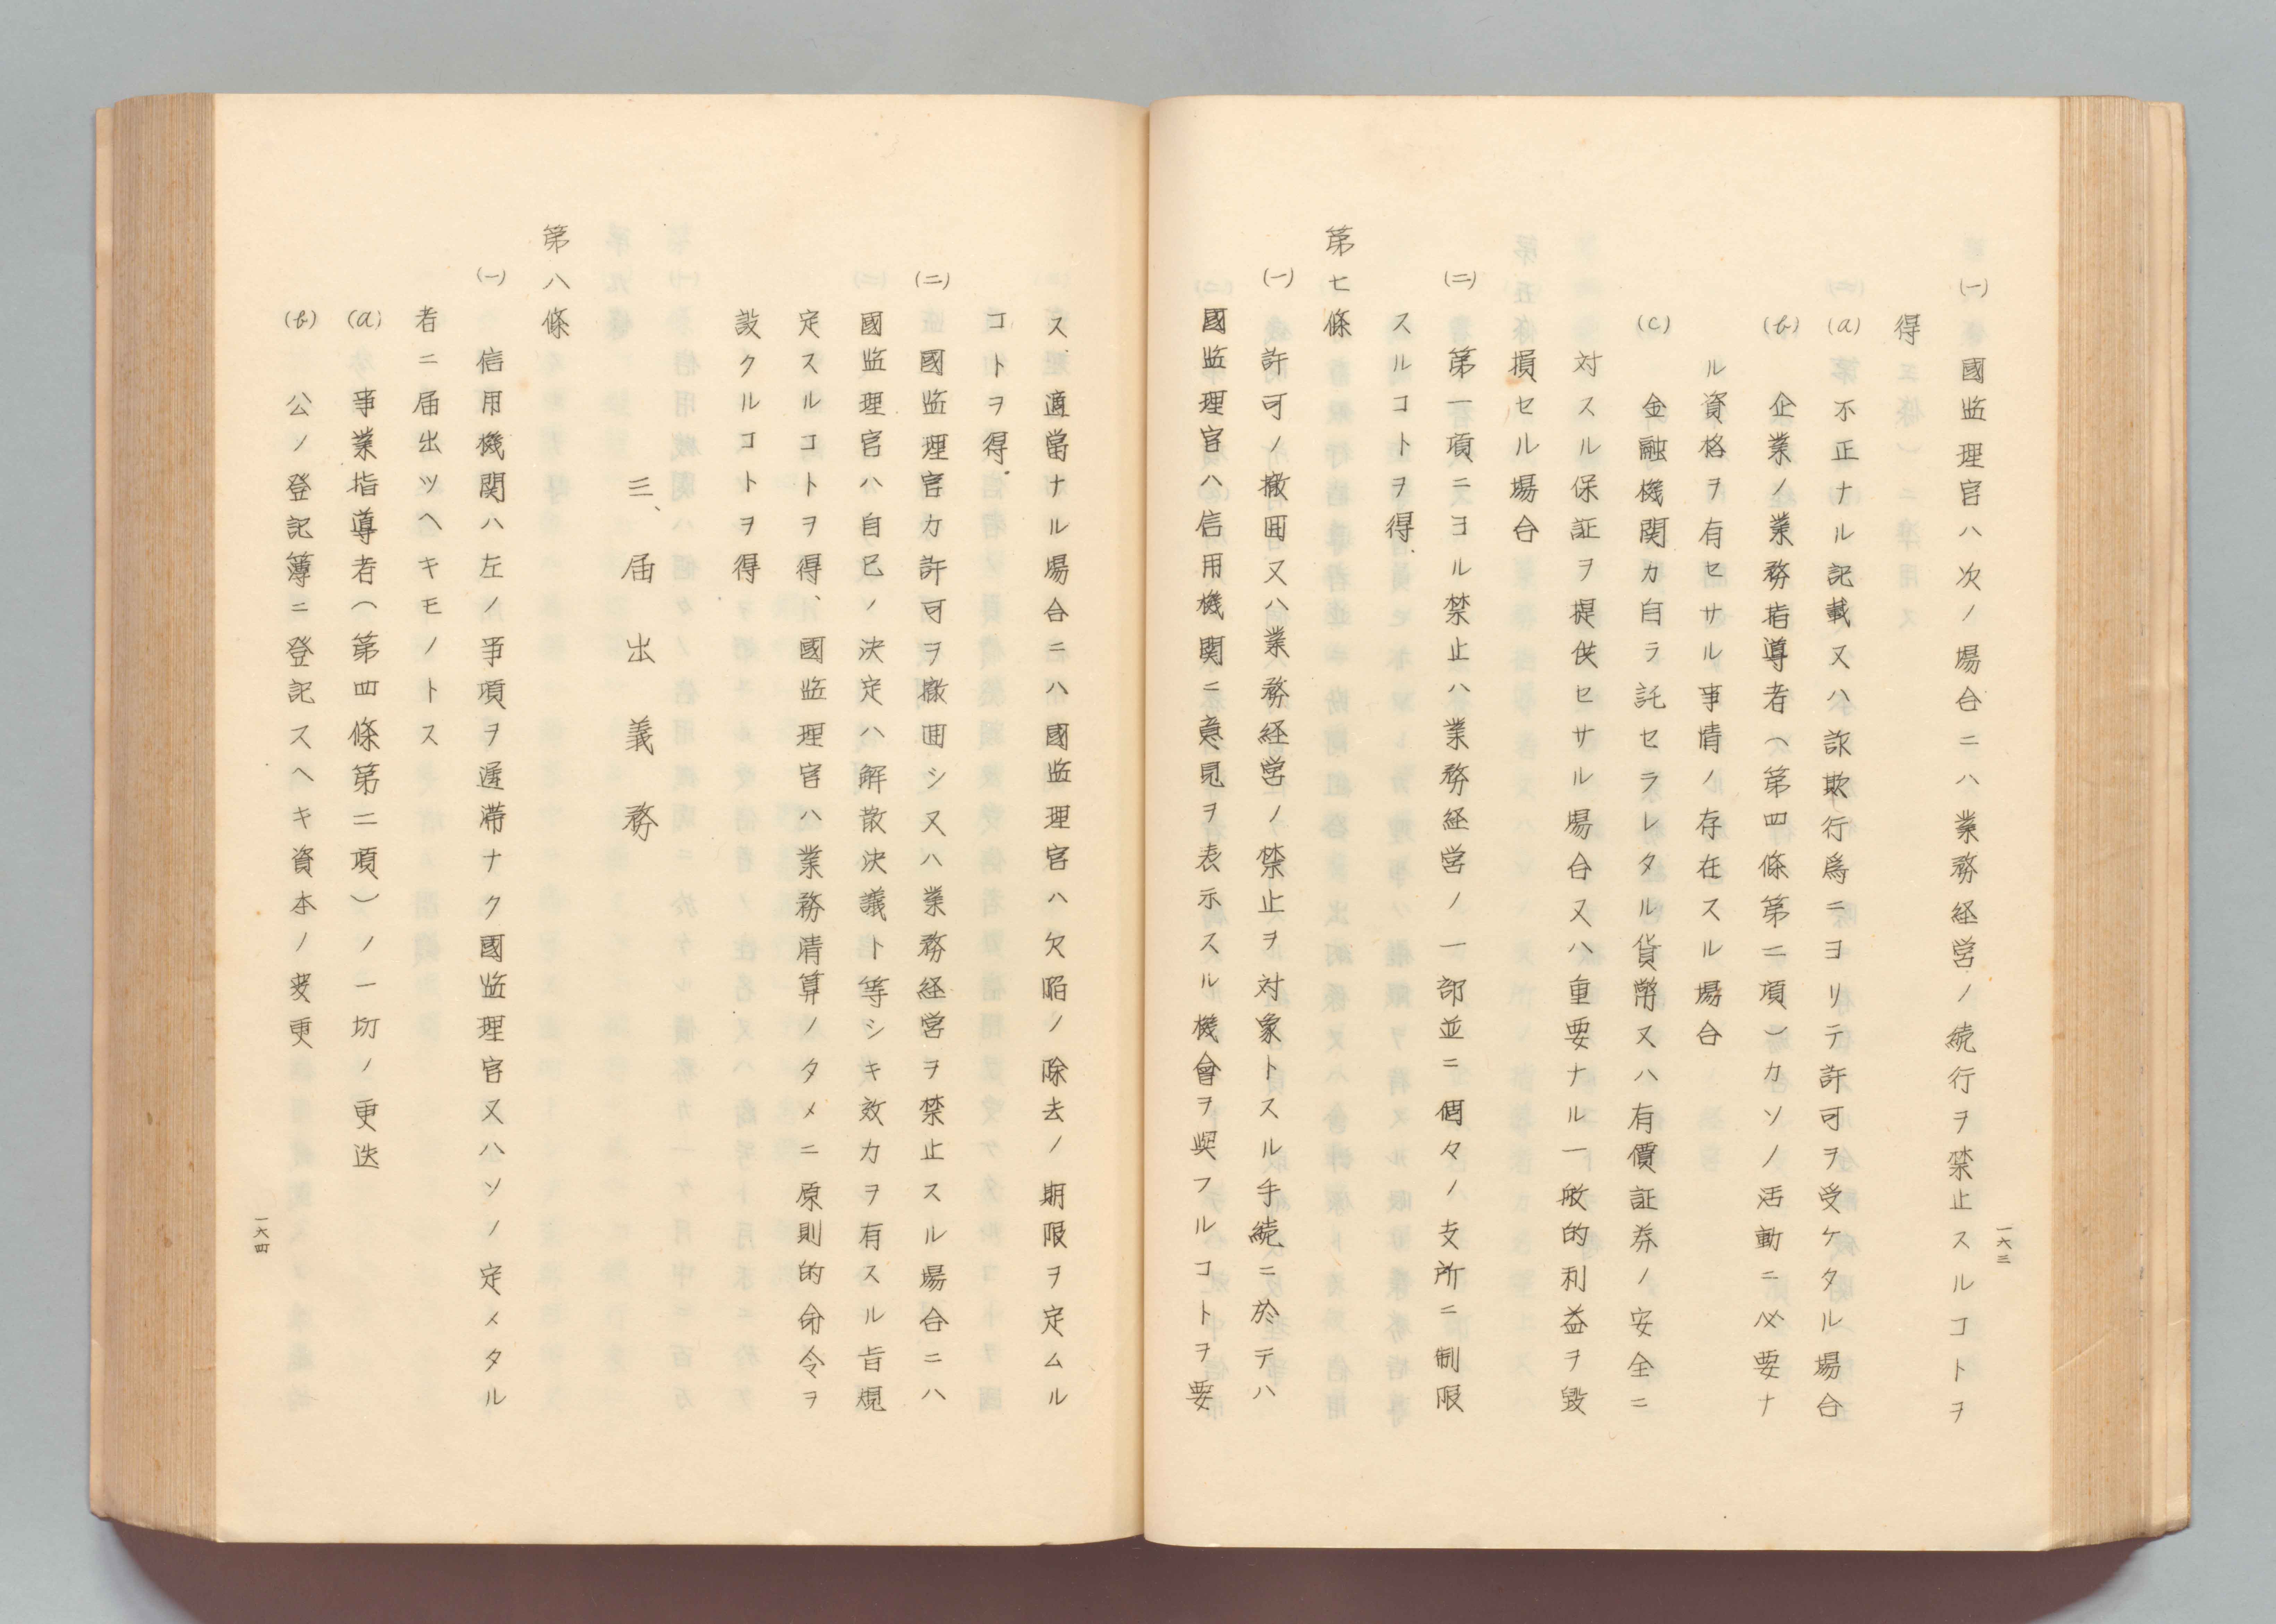 一六三
(一) 國監理官ハ次ノ場合ニハ業務経営ノ続行ヲ禁止スルコトヲ
得
(a) 不正ナル記載又ハ詐欺行爲ニヨリテ許可ヲ受ケタル場合
(b) 企業ノ業務指導者(第四條第二項)カソノ活動ニ必要ナ
ル資格ヲ有セサル事情ノ存在スル場合
(c) 金融機関カ自ラ託セラレタル貨幣又ハ有價証券ノ安全ニ
対スル保証ヲ提供セサル場合又ハ重要ナル一般的利益ヲ毀
損セル場合
(二) 第一項ニヨル禁止ハ業務経営ノ一部並ニ個々ノ支所ニ制限
スルコトヲ得
第七條
(一) 許可ノ撤囬又ハ業務経営ノ禁止ヲ対象トスル手続ニ於テハ
國監理官ハ信用機関ニ意見ヲ表示スル機會ヲ與フルコトヲ要
ス 適當ナル場合ニハ國監理官ハ欠陥ノ除去ノ期限ヲ定ムル
コトヲ得
(二) 國監理官カ許可ヲ撤囬シ又ハ業務経営ヲ禁止スル場合ニハ
國監理官ハ自己ノ決定ハ解散決議ト等シキ效力ヲ有スル旨規
定スルコトヲ得、國監理官ハ業務清算ノタメニ原則的命令ヲ
設クルコトヲ得
三、届出義務
第八條
(一) 信用機関ハ左ノ事項ヲ遅滞ナク國監理官又ハソノ定メタル
者ニ届出ツヘキモノトス
(a) 事業指導者(第四條第二項)ノ一切ノ更迭
(b) 公ノ登記簿ニ登記スヘキ資本ノ変更
一六四